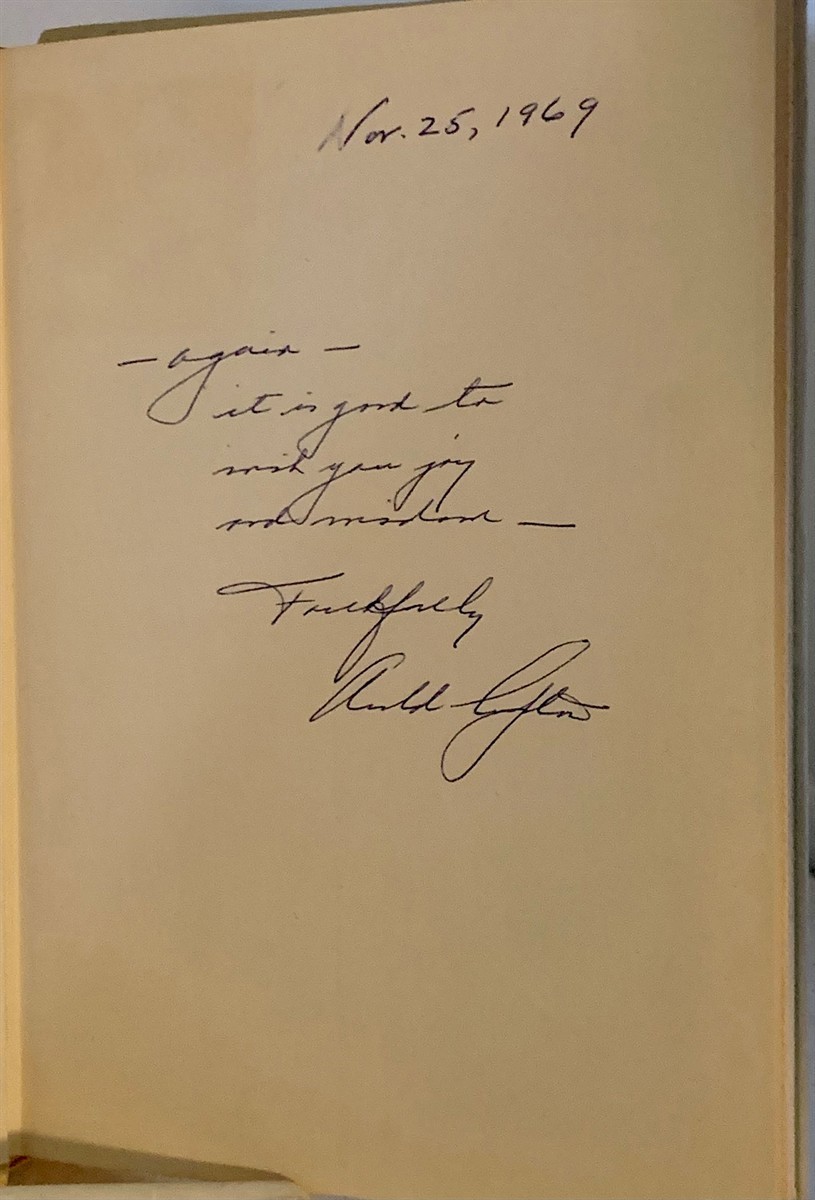 Nov. 25, 1969
— again —
it is good to
wish you joy
and wisdom —
Faithfully